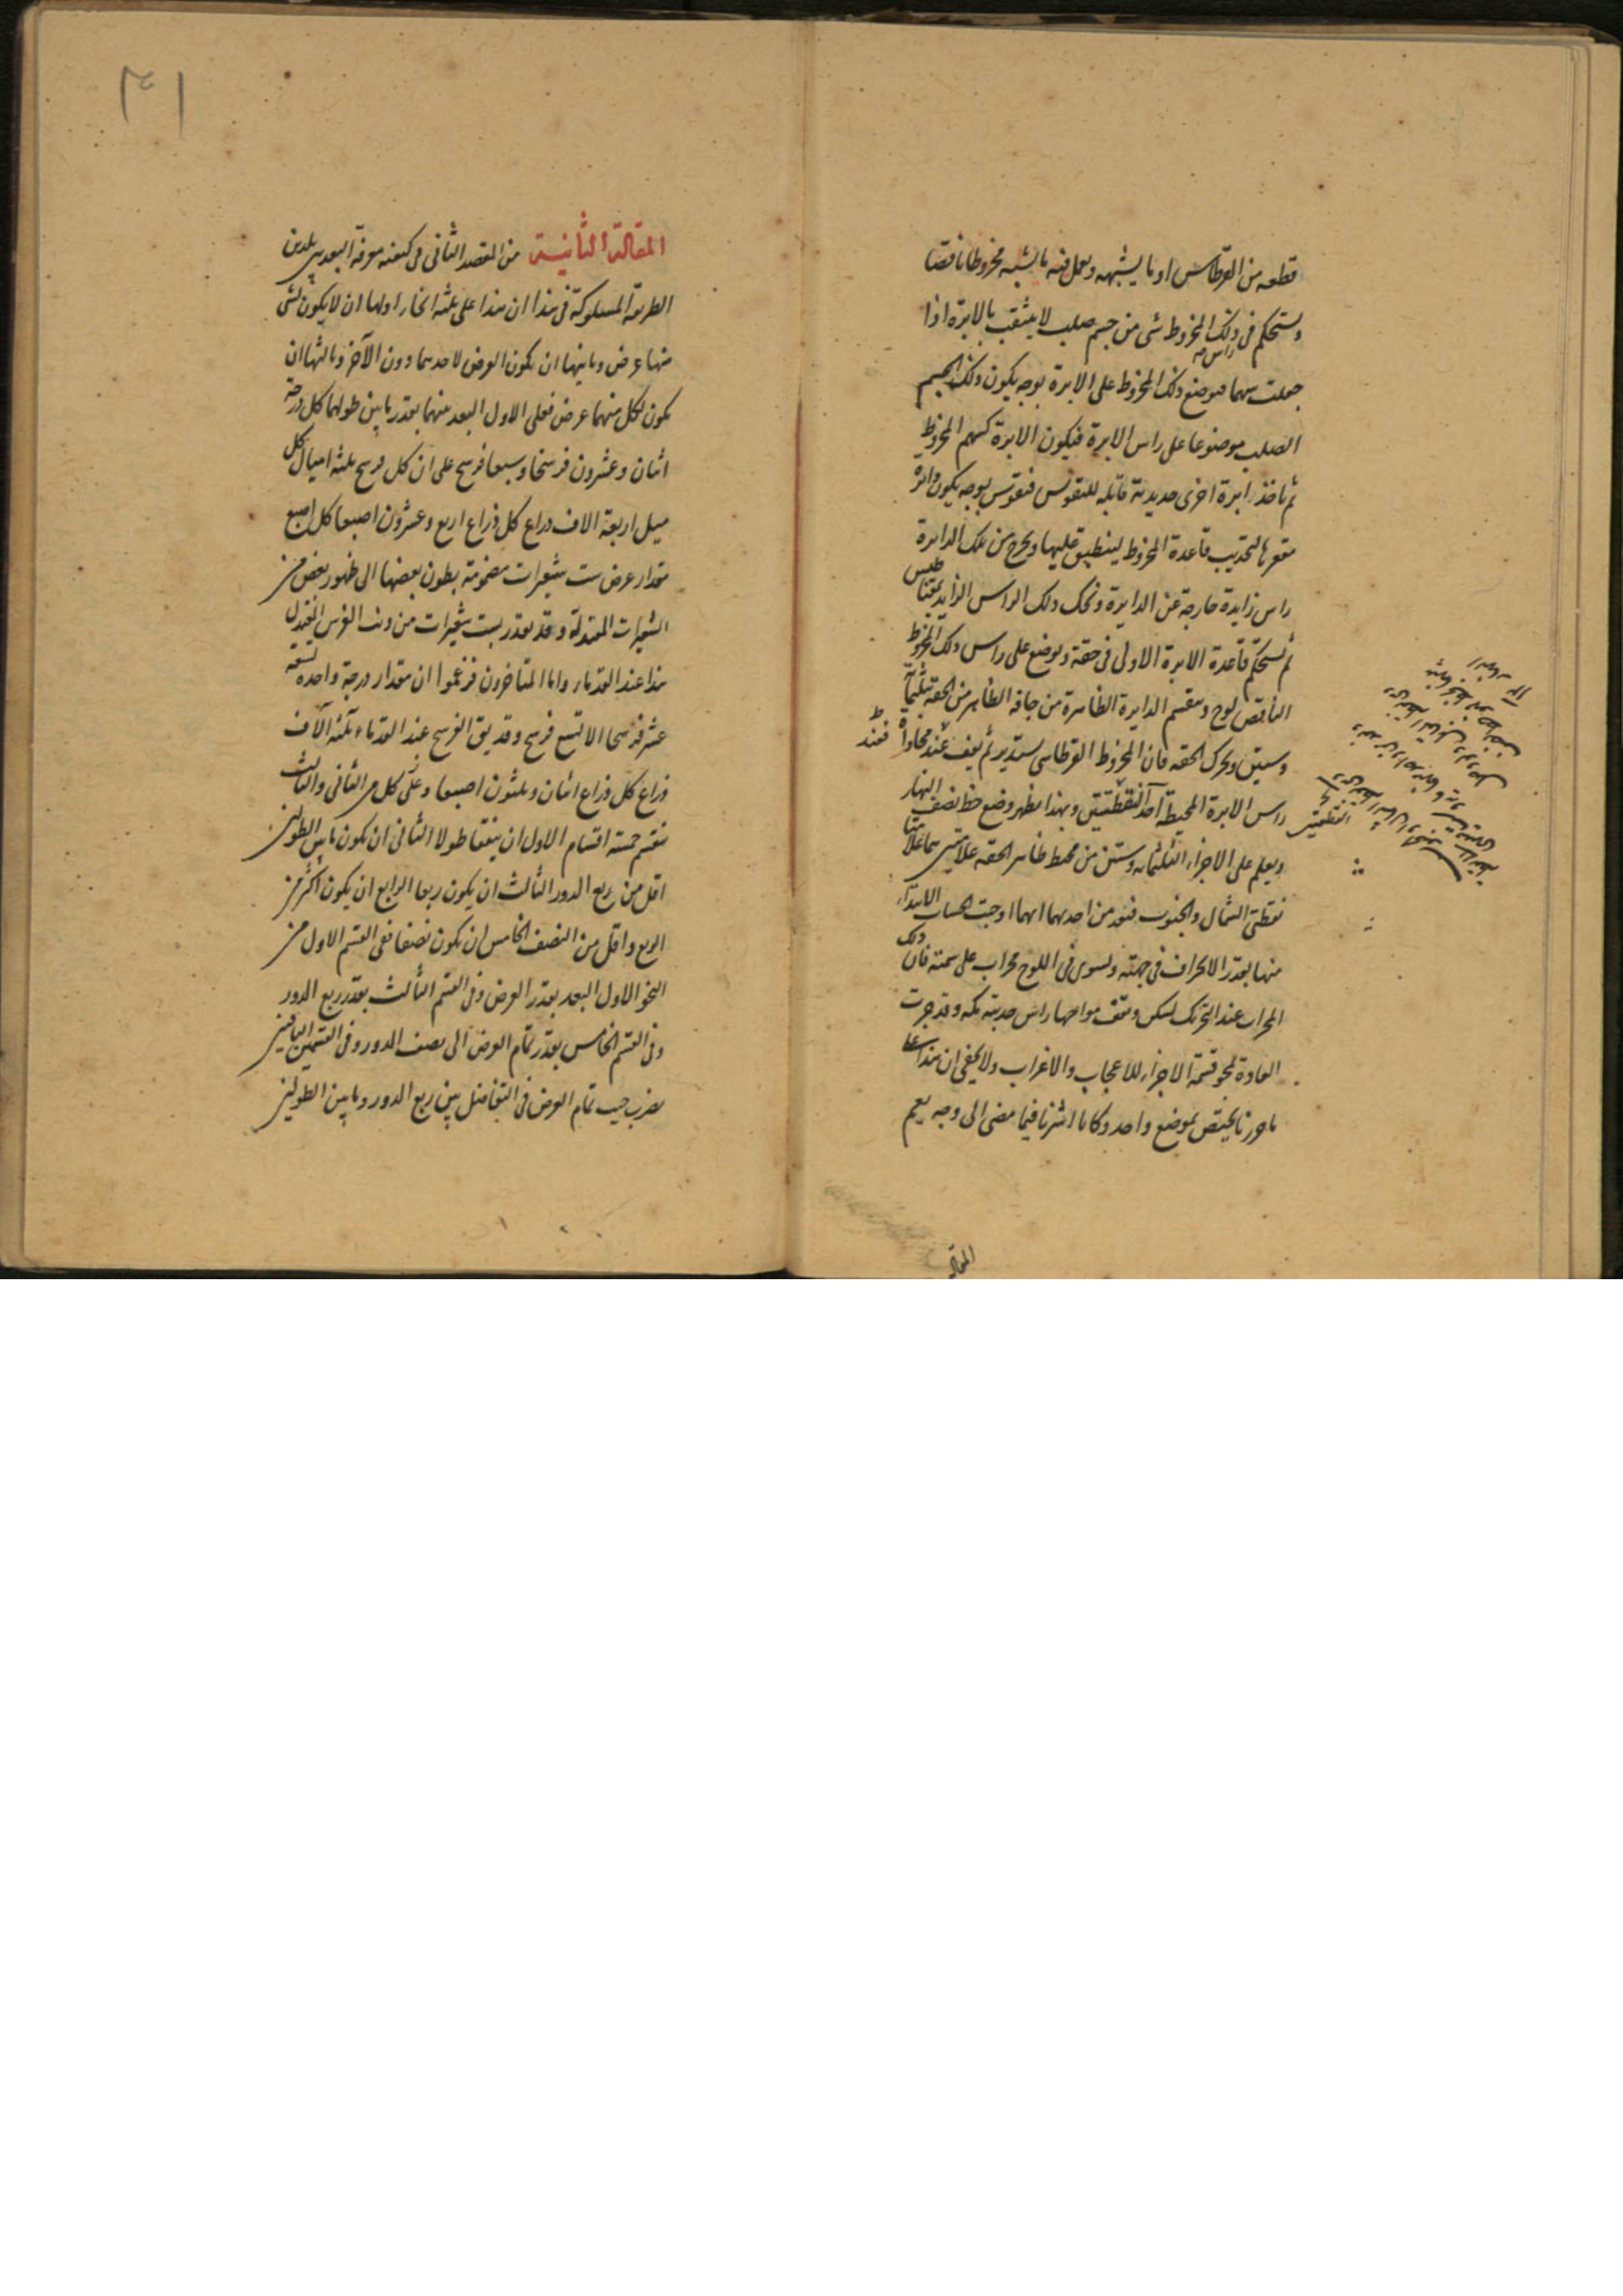 قطعه من القرطاس او ما يشبهه ويعمل فيه ما يشبه مخروطا ناقصا
ويستحكم فى ذلك المخروط شى من جسم صلب لا يثقب بالابرة اذا
جعلت سهما فيوضع ذلك المخروط على راس الابرة بوجه يكون ذلك الجسم
الصلب موضوعا على راس الابرة فيكون الابرة كسهم المخروط
ثم ناخذ ابرة اخرى حديدية قابلة للتقويس فتقوس بوجه يكون دائرة
مقعرها لتحديب قاعدة المخروط لينطبق عليها ويخرج من تلك الدايرة
راس زايدة خارجة عن الدايرة ونحك ذلك الراس الزايد بمقناطيس
ثم تستحكم قاعدة الابرة الاولى فى حقة ويوضع على راس ذلك المخروط
الناقص لوح ويقسم الدايرة الظاهرة من حافة الظاهر من الحقه بثلثمائة
وستين ويحرك الحقه فان المخروط القرطاسى يستدير ثم يقف عند محاذاة فعند
راس الابرة المحيطة احد النقطتين وبهذا يظهر وضع خط نصف النهار
ويعلم على الاجزاء الثلثمائه وستين من محيط ظاهر الحقه علامتين هما علامتا
نقطتى الشمال والجنوب فنعد من احديهما ايهما اوجبت الحساب الابتداء
منها بقدر الانحراف فى جهته ويسوى فى اللوح محراب على سمته فان ذلك
المحراب عند التحرك يسكن ويقف مواجها راس مدينة مكه وقد جرت
العادة لمحو قسمة الاجزاء للاعجاب والاغراب ولا يخفى ان هذا على
ما حررنا يختص بموضع واحد وكانا اشرنا فيما مضى الى وجه يعم
النقطتين
المقالة
٣١
المقالة الثانية من المقصد الثانى فى كيفيه معرفة البعد بين بلدين
الطريقة المسلوكة فى هذا ان هذا على ثلثه انحاء اولها ان لا يكون لشى
منها عرض وثانيها ان يكون العرض لاحدهما دون الآخر وثالثها ان
يكون لكل منهما عرض فعلى الاول البعد بينهما بقدر ما بين طولهما كل درجة
اثنان وعشرون فرسخا وسبعا فرسخ على ان كل فرسخ ثلثه اميال كل
ميل اربعة الاف ذراع كل ذراع اربع وعشرون اصبعا كل اصبع
مقدار عرض ست شعيرات مضمومة بطون بعضها الى ظهور بعض من
الشعيرات المعتدلة وقد يقدر بست شعيرات من ذنب الفرس المعتدل
هذا عند القدماء واما المتاخرون فزعموا ان مقدار درجة واحدة تسعة
عشر فرسخا الا تسع فرسخ وقد يق الفرسخ عند القدماء ثلثة آلاف
ذراع كل ذراع اثنان وثلثون اصبعا وعلى كل من الثانى والثالث
ينقسم خمسة اقسام الاول ان يتفقا طولا الثانى ان يكون ما بين الطولين
اقل من ربع الدور الثالث ان يكون ربعا الرابع ان يكون اكثر من
الربع واقل من النصف الخامس ان يكون نصفا ففى القسم الاول من
النحو الاول البعد بقدر العرض وفى القسم الثالث بقدر ربع الدور
وفى القسم الخامس بقدر تمام العرض الى نصف الدور وفى القسمين الباقيين
يضرب جيب تمام العرض فى التفاضل بين ربع الدور وما بين الطولين